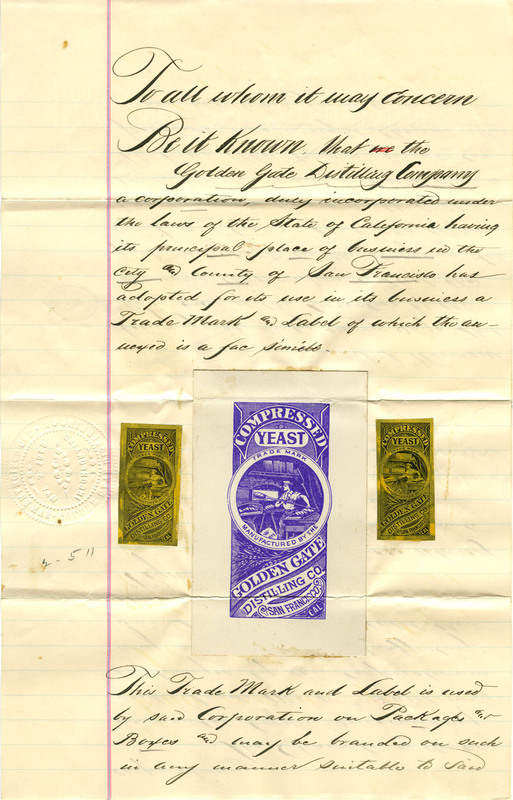 To all whom it may concern
Be it Known, that we the
Golden Gate Distilling Company
a corporation, duly incorporated under
the laws of the State of California having
its principal place of business in the
City and County of San Francisco has
adopted for its use in its business a
Trade Mark and Label of which the an-
nexed is a fac simile.
COMPRESSED
YEAST
TRADE MARK
MANUFACTURED BY THE
GOLDEN GATE
DISTILLING CO.
SAN FRANCISCO
CAL
COMPRESSED
YEAST
GOLDEN GATE
DISTILLING CO.
COMPRESSED
YEAST
GOLDEN GATE
DISTILLING CO.
This Trade Mark and Label is used
by said Corporation on Packages and
Boxes and may be branded on such
in any manner suitable to said